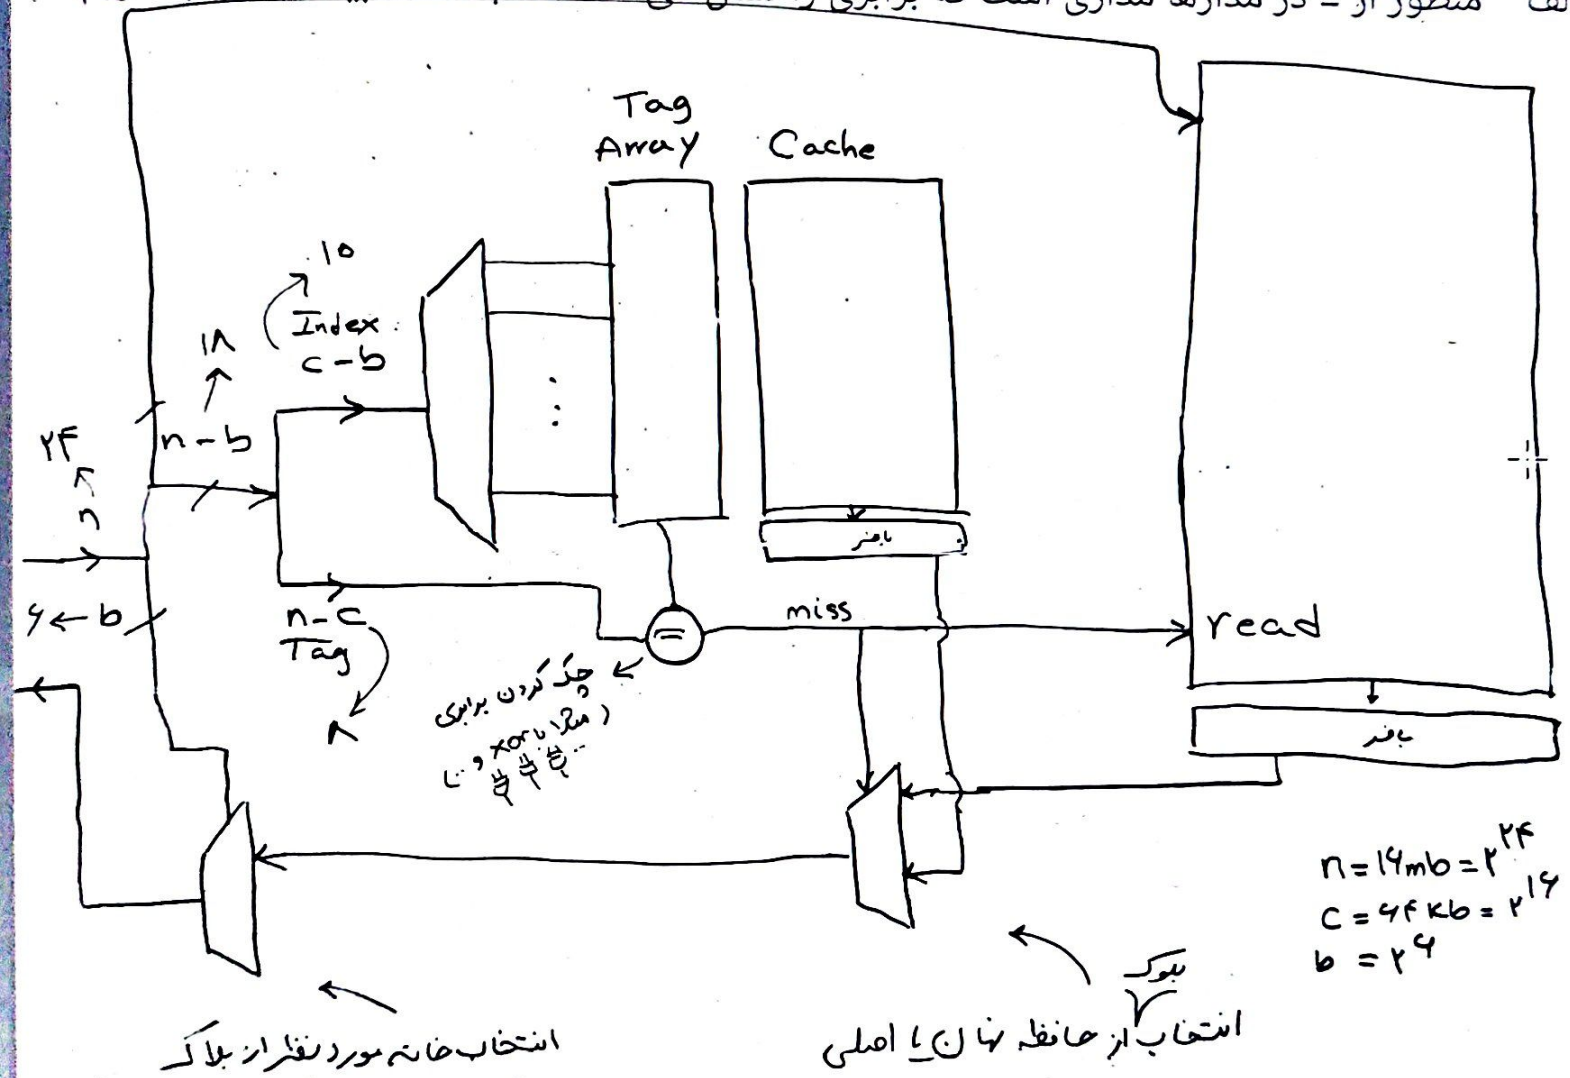 منظور از = در مدارها مداری است که برابری را
Tag
Array
Cache
۱۰
Index
c-b
۱۸
n-b
۲۴
n
۶ ← b
n-c
Tag
۸
=
miss
read
بافر
بافر
چک کردن برابری
(مثلا با xor و ...)
n = ۱۶mb = ۲^۲۴
c = ۶۴kb = ۲^۱۶
b = ۲^۶
بلوک
انتخاب از حافظه نهان یا اصلی
انتخاب خانه مورد نظر از بلاک